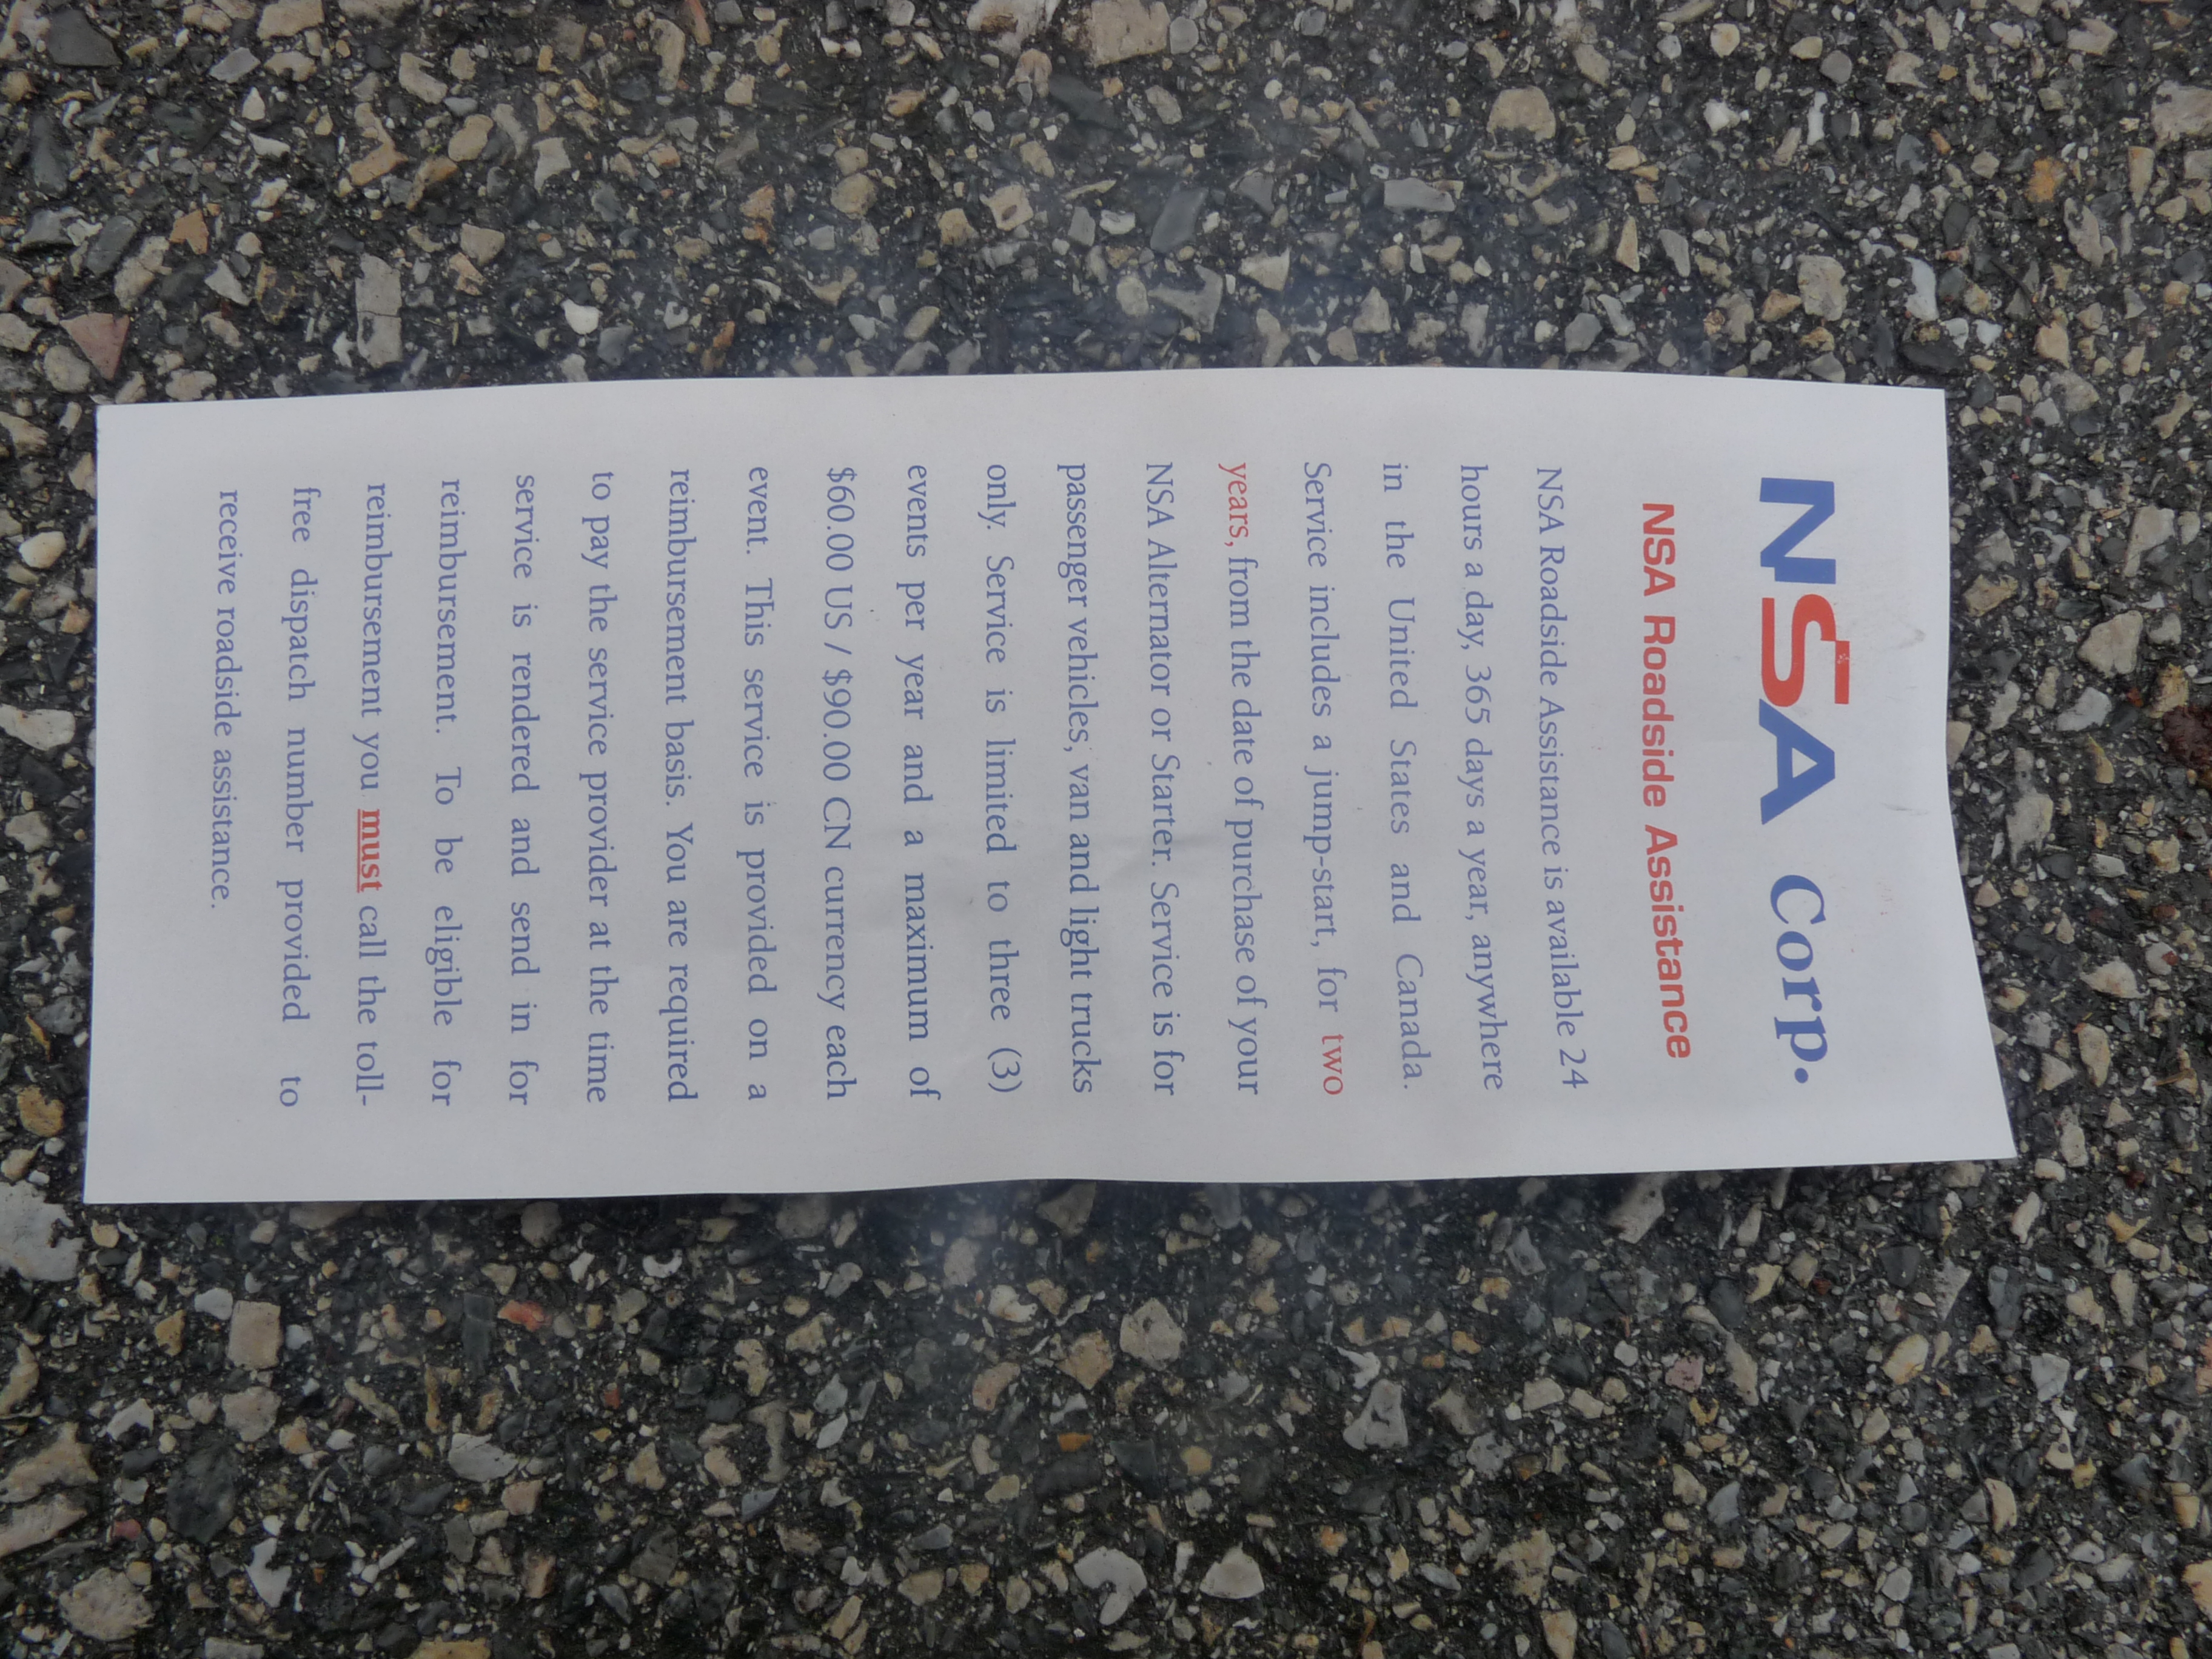 NSA Corp.
NSA Roadside Assistance
NSA Roadside Assistance is available 24
hours a day, 365 days a year, anywhere
in the United States and Canada.
Service includes a jump-start, for two
years, from the date of purchase of your
NSA Alternator or Starter. Service is for
passenger vehicles, van and light trucks
only. Service is limited to three (3)
events per year and a maximum of
$60.00 US / $90.00 CN currency each
event. This service is provided on a
reimbursement basis. You are required
to pay the service provider at the time
service is rendered and send in for
reimbursement. To be eligible for
reimbursement you must call the toll-
free dispatch number provided to
receive roadside assistance.